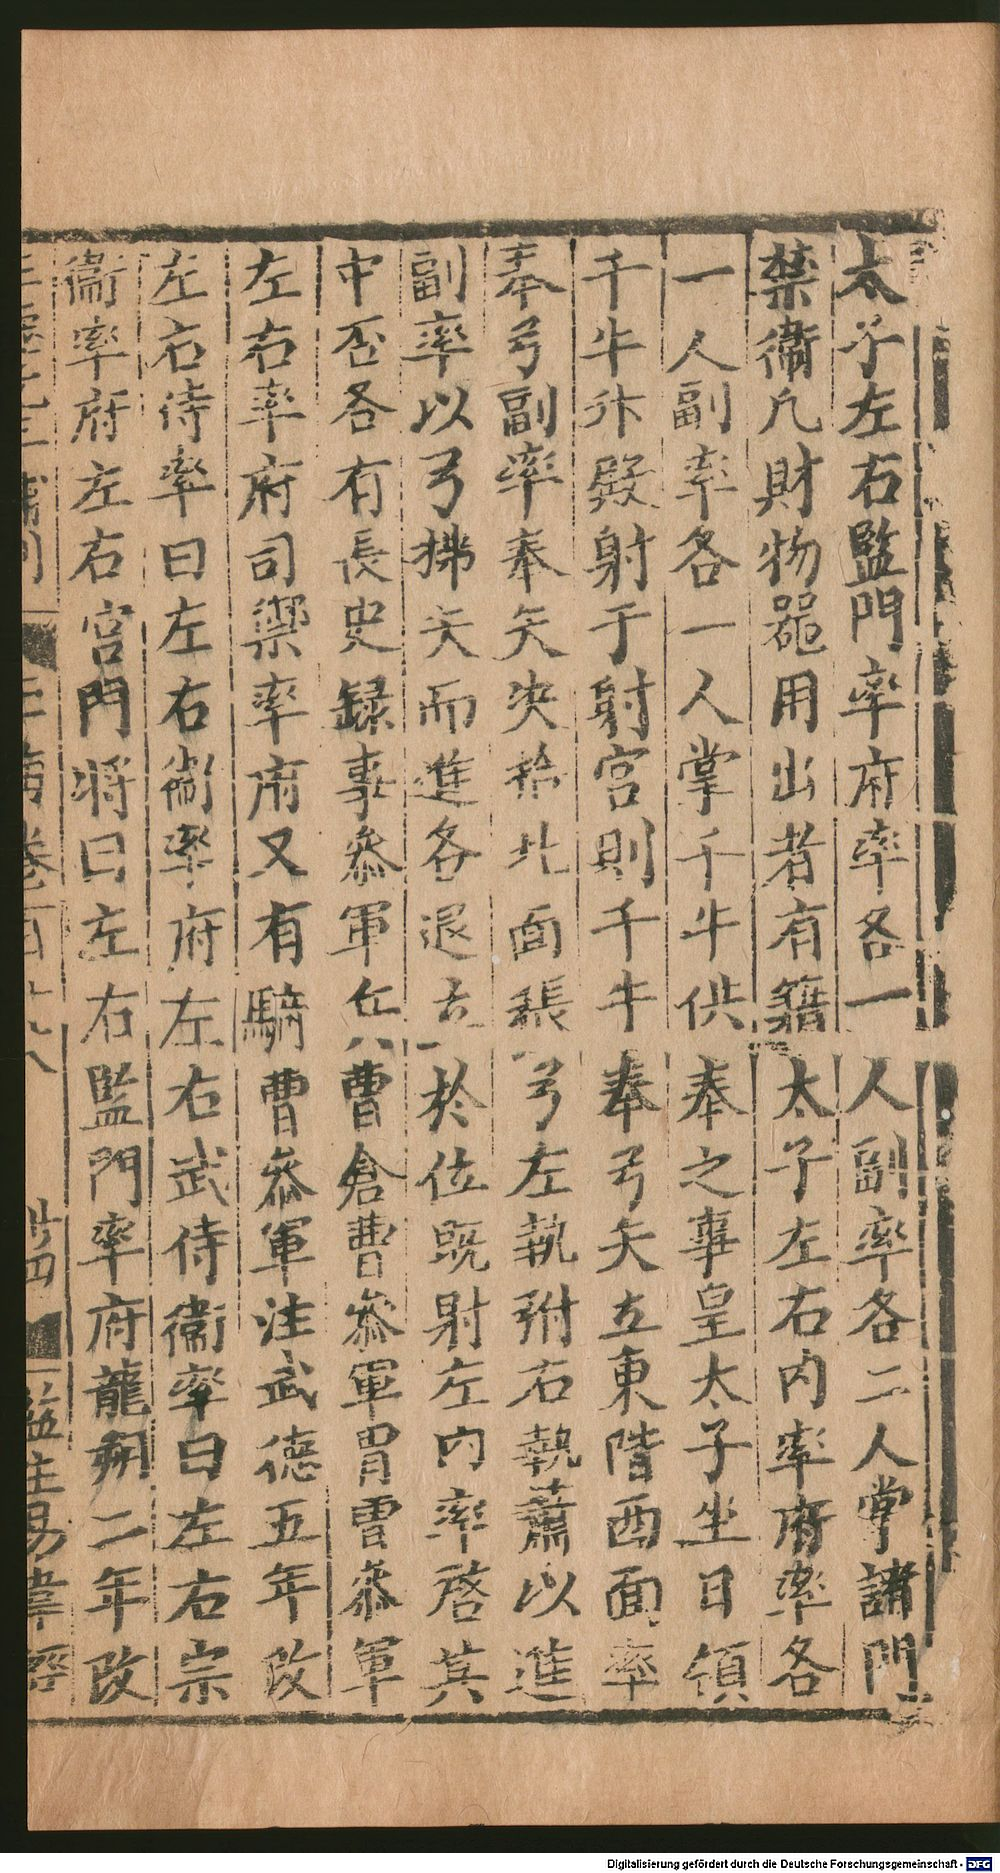 太子左右監門率府率各一人副率各二人掌諸門
禁衛凡財物器用出者有籍太子左右内率府率各
一人副率各一人掌千牛供奉之事皇太子坐日領
千牛升殿射于射宮則千牛奉弓矢立東階西面率
奉弓副率奉矢決拾北面張弓左執弣右執蕭以進
副率以弓拂矢而進各退立於位既射左内率啓其
中否各有長史録事參軍兵曹倉曹參軍冑曹參軍
左右率府司禦率府又有騎曹參軍注武德五年改
左右侍率曰左右衛率府左右武侍衛率曰左右宗
衛率府左右宮門將曰左右監門率府龍朔二年改
卷百六八
廿四
監生易韋儒
Digitalisierung gefördert durch die Deutsche Forschungsgemeinschaft - DFG